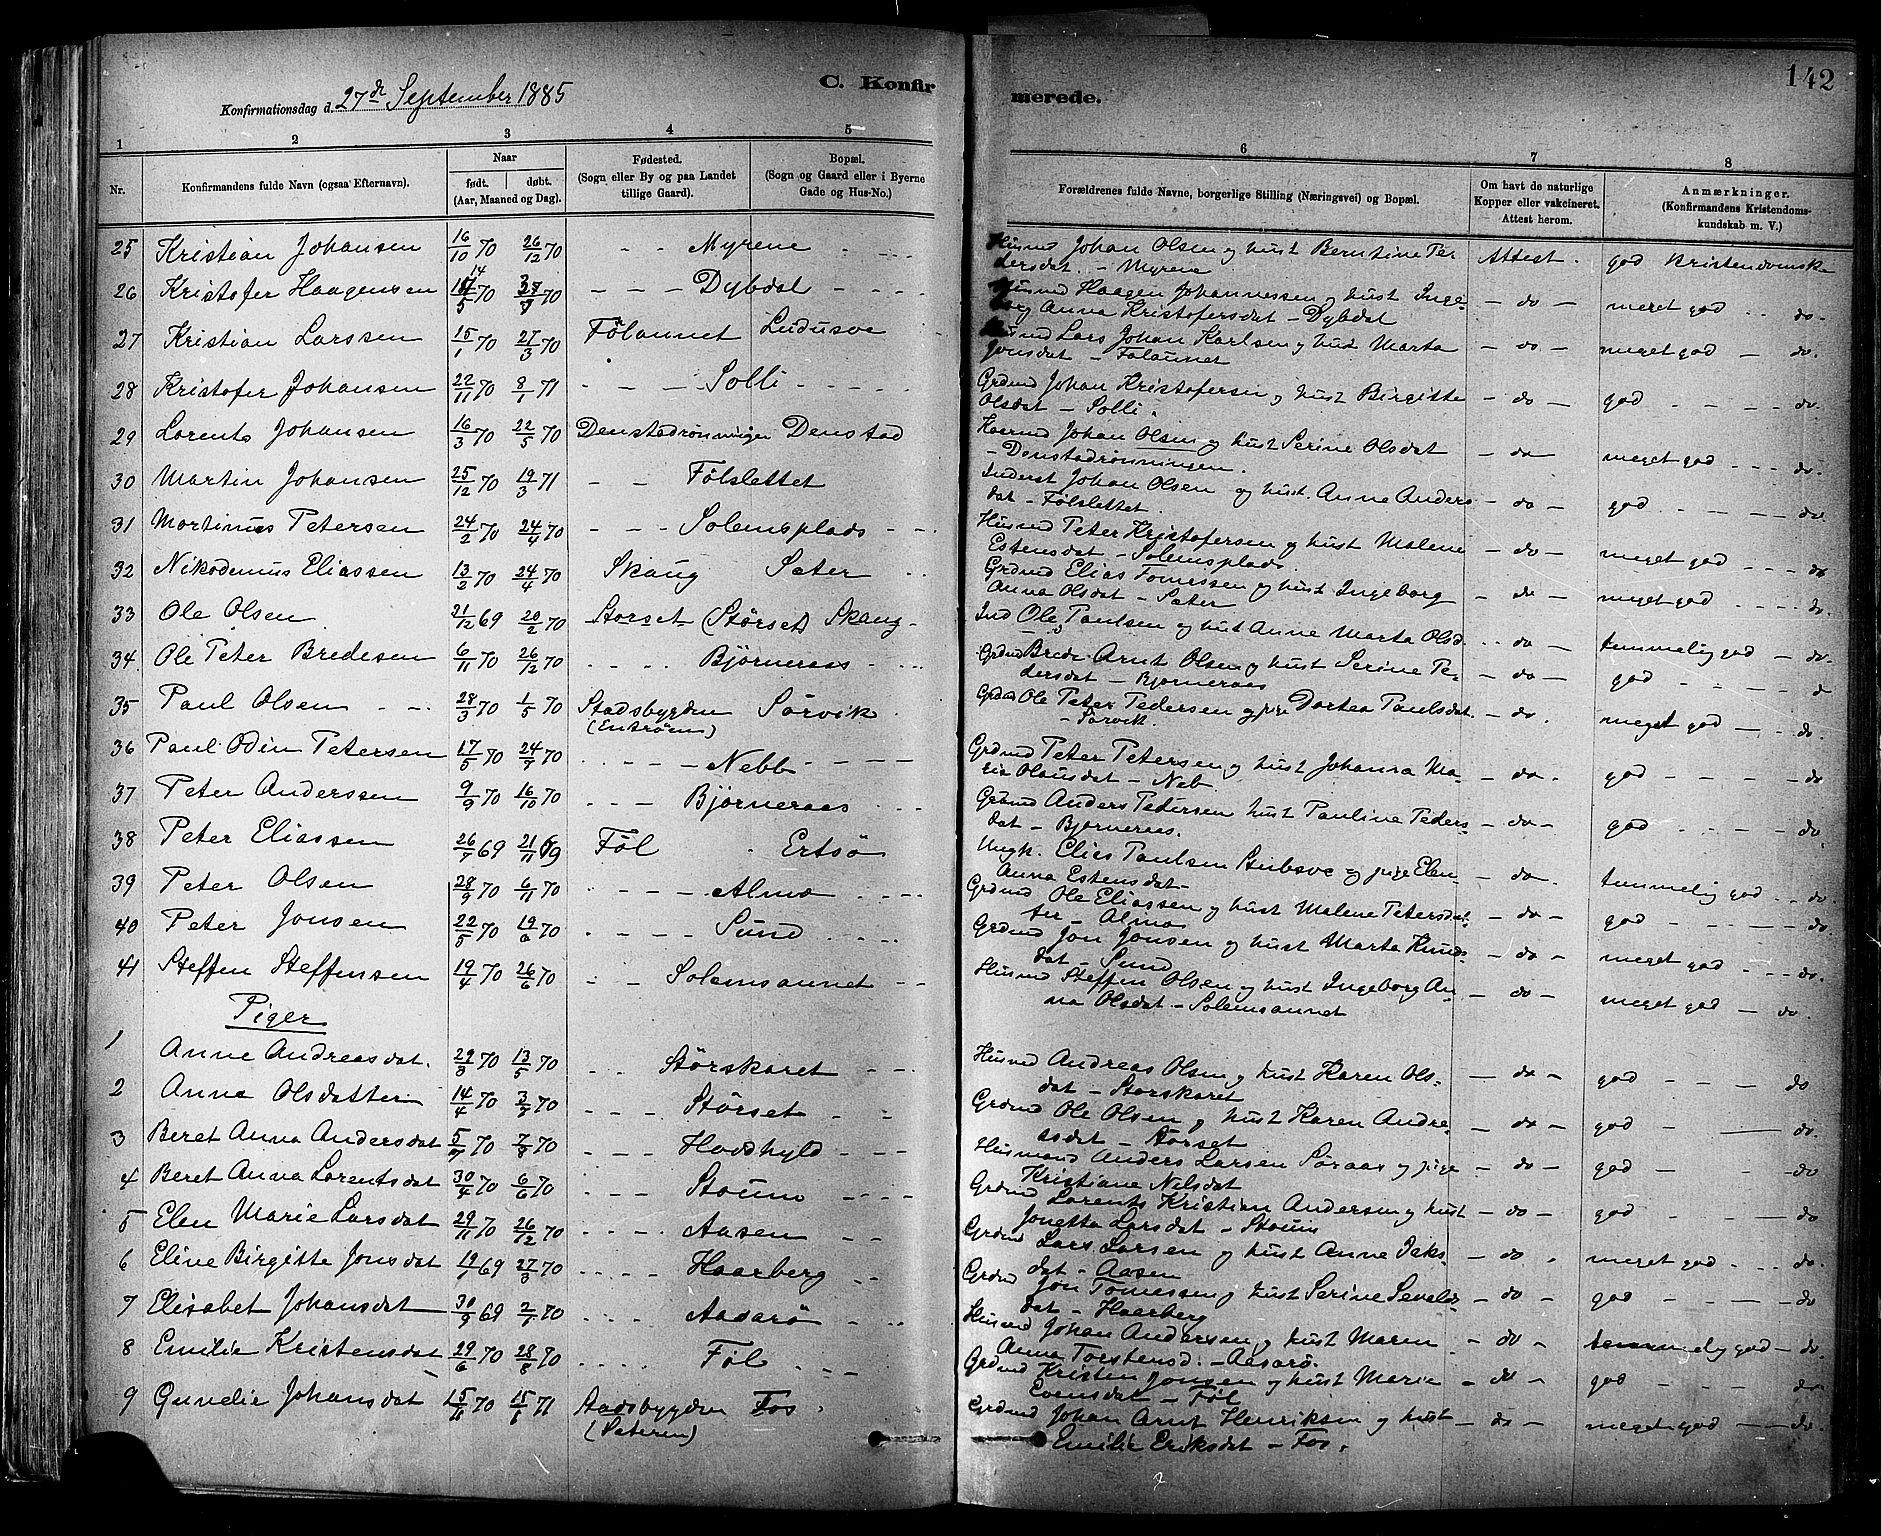 142
Konfirmationsdag d. 27de September 1885
C. Konfirmerede.
1 2 3 4 5 6 7 8
Nr.
Konfirmandens fulde Navn (ogsaa Efternavn).
Naar
født. døbt.
(Aar, Maaned og Dag).
Fødested.
(Sogn eller By og paa Landet
tillige Gaard).
Bopæl.
(Sogn og Gaard eller i Byerne
Gade og Hus-No.)
Forældrenes fulde Navne, borgerlige Stilling (Næringsvei) og Bopæl.
Om havt de naturlige
Kopper eller vakcineret.
Attest herom.
Anmærkninger.
(Konfirmandens Kristendoms-
kundskab m. V.)
25 Kristian Johansen 16/10 70 26/12 70 - - Myrene - Husmd Johan Olsen og hust Berntine Pe-
dersdat. - Myrene Attest. god Kristendomsk
26 Kristofer Haagensen 14/5 70 70 - - - Dybdal - - - Husmd Haagen Johannessen og hust Inge-
borg Anna Kristofersdat - Dybdal - do - meget god - - do.
27 Kristian Larssen 15/1 70 21/3 70 Fölaunet Ludusve Husmd Lars Johan Karlsen og hust Marta
Jonsdat - Fölaunet - do - meget god - do.
28 Kristofer Johansen 22/11 70 8/1 71 - - - Solli - - - Grdmd Johan Kristofersen og hust Birgitte
Olsdat - Solli. - do - god - - - do.
29 Lorents Johansen 16/3 70 22/5 70 Denstadrønningen Denstad Johan Olsen og hust Serine Olsdat
- Denstadrønningen. - do - meget god - - - do.
30 Martin Johansen 25/12 70 19/3 71 - - Fölslettet Inderst Johan Olsen og hust. Anne Anders-
dat - Fölslettet. - do - god - - - do.
31 Martinus Petersen 24/2 70 24/4 70 - - - Solemsplads - - Husmd Peter Kristofersen og hust Malene
Estensdat - Solemsplads. - do - meget god - - - do
32 Nikodemus Eliassen 13/2 70 24/4 70 Skaug Sæter - - Grdmd Elias Tomessen og hust Ingeborg
Anna Olsdat - Sæter - do - meget god - - - do.
33 Ole Olsen 21/12 69 20/2 70 Storset (Störset) Skaug - Ind Ole Paulsen og hust Anne Marta Olsd. - do - temmelig god - do.
34. Ole Peter Bredesen 6/11 70 26/12 70 - - - Björneraas - Grdmd Brede Arnt Olsen og hust Serine Pe-
dersdat - Bjørneraas - do - god - - - d
35 Paul Olsen - - 28/3 70 1/5 70 Stadsbygden Sörvik
(Enträen) Grdmd Ole Peter Pedersen og pige Dortea Paulsdat.
- Sørvik. - do. meget god - - do.
36 Paul Odin Petersen 17/5 70 24/7 70 - - - Nebb - - - Grdmd Peter Petersen og hust Johanna Ma-
ria Olausdat - Neb - do - god - - - do
37 Peter Anderssen 9/9 70 16/10 70 - - - Björneraas - - Grdmd Anders Pedersen hust Pauline Peders-
dat - Bjørneraas. - do - god - - - do
38 Peter Eliassen 26/7 69 21/11 69 Föl Ertsö Ungk. Elias Paulsen Stubsve og pige Elen
Anna Estensdat - - do - temmelig god - - do.
39 Peter Olsen 28/9 70 6/11 70 - - - Almo - - - Grdmd Ole Eliassen og hust Malene Petersdat-
ter - Almo - do - god - - - do.
40 Peter Jonsen 22/5 70 19/6 70 - - - Sund - - - Grdmd Jon Jonsen og hust Marta Knuds-
dat - Sund - do - meget god - - - do.
41 Steffen Steffensen 19/4 70 26/6 70 - - Solemsaunet - - Husmd Steffen Olsen og hust Ingeborg An-
na Olsdat - Solemsaunet - do - meget god - do.
Piger
1 Anne Andreasdat. 29/3 70 13/5 70 - - Störskaret - - Husmd Andreas Olsen og hust Karen Ols-
dat - Storskaret - do - god - - - do
2 Anna Olsdatter 14/4 70 3/7 70 - - - Störset - - Grdmd Ole Olsen og hust Karen Andre-
asdat - Störset - do - god - - do.
3 Beret Anna Andersdat 5/7 70 7/8 70 - - - Hovdhyld - - Husmand Anders Larsen Søraas og pige
Kristiane Nilsdat - do - god - - - do.
4 Beret Anna Lorentsdat 30/4 70 6/6 70 - - - Stoum - - - Grdmd Lorents Kristian Andersen og hust
Jonetta Larsdat - Stoum - do - god - - - do
5 Elen Marie Larsdat 29/11 70 26/12 70 - - - Aasen - - Grdmd Lars Larsen og hust Anne Isaks-
dat - Aasen - do - meget god - - - do.
6 Eline Birgitte Jonsdat 69 27/3 70 - - - Haarberg - - Grdmd Jon Tomessen og hust Serine Sevalds-
dat - Haarberg - do - god - - - do
7 Elisabet Johansdat 30/9 69 2/1 70 - - - Aasarö - - Husmd Johan Andersen og hust Maren
Anna Torstensd. - Aasarö. - do - temmelig god - do.
8 Emilie Kristensdat 29/6 70 28/8 70 - - - Föl - - - Grdmd Kristen Jonsen og hust Marie
Evensdat - Föl - do - god - - - do
9 Gunelie Johansdat 15/11 70 15/1 71 Stadsbygden Fos.
(Sæteren) Grdmd Johan Arnt Henriksen og hust
Emilie Eriksdat - Fos. - do - meget god - do.